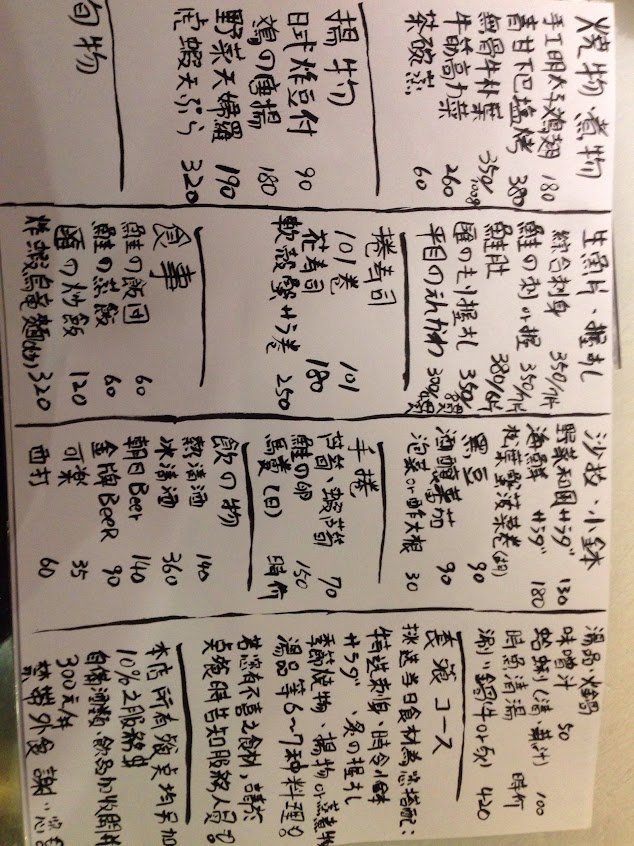 燒物．煮物
手工明太子鷄翅 180
青甘下巴塩烤 380
無骨牛朴葉 350/100g
牛筋高力菜 260
茶碗蒸 60
揚物
日式炸豆付 90
鷄の唐揚 180
野菜天婦羅 190
虎蝦天ぷら 320
旬物
生魚片、握し
綜合刺身 350/
鮭の刺or握 350/
鮭肚 380/6片
握し 350/
平目のえんがわ 300/
捲寿司
101卷 101
花寿司 180
軟殼蟹サラ卷 250
食事
鮭の飯団 60
鮭の蒸飯 60
の炒飯 120
炸蝦烏竜麵(1支) 320
沙拉、小鉢
野菜和風サラダ 130
海鮮サラダ 180
松葉蟹菠菜卷
黑豆 90
酒釀蕃茄 90
泡菜or酢大根 30
手捲
芦筍、蝦芦筍 70
鮭の卵 150
馬糞(日) 時价
飲の物
熱清酒 140
冰清酒 360
朝日Beer 140
金牌BEER 90
可樂 35
西打 60
湯品火鍋
味噌汁 50
蛤蜊(清、蒸汁) 100
時魚清湯 時价
涮涮鍋(牛or豚) 420
套餐コース
挑选当日食材為您搭配：
特选刺身、時令小鉢
サラダ、炙の握し
季節燒物、揚物or蒸煮物
湯品等6～7种料理。
若您有不喜之食材，請於
点餐時告知服務人員。
本店所有餐点均另加
10%之服務費
自備酒類，飲品加收開瓶
300元/瓶
禁帶外食 謝謝